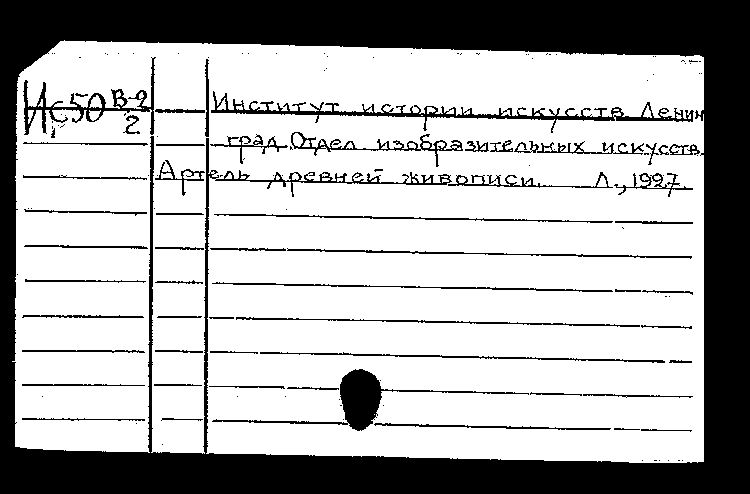 Ис50 В-2
2
Институт истории искусств Ленин
град. Отдел изобразительных искусств.
Артель древней живописи. Л., 1927.